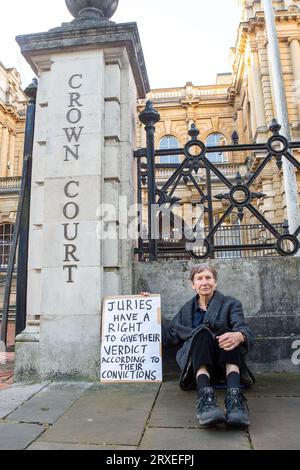 CROWN
COURT
JURIES
HAVE A
RIGHT
TO GIVE THEIR
VERDICT
ACCORDING TO
THEIR
CONVICTIONS
alamy
Image ID: 2RXEFPJ
www.alamy.com